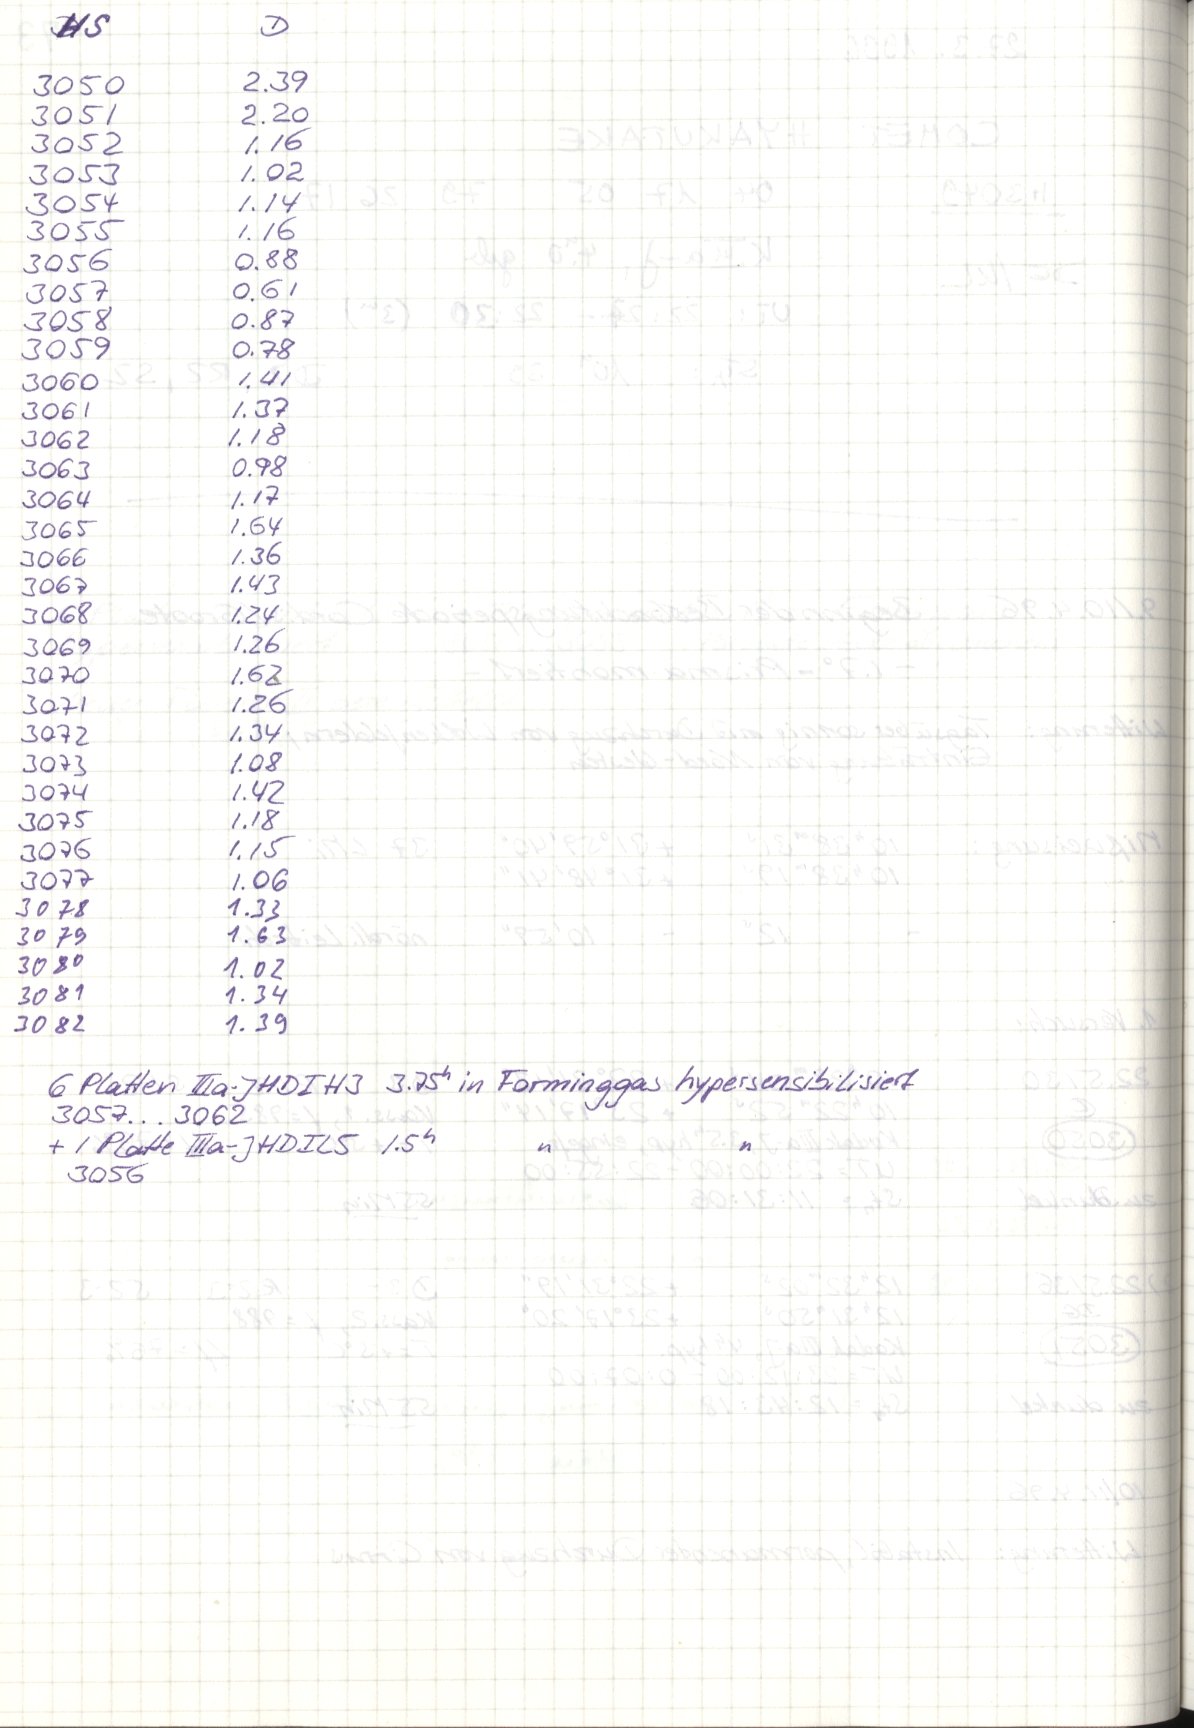 HS D
3050 2.39
3051 2.20
3052 1.16
3053 1.02
3054 1.14
3055 1.16
3056 0.88
3057 0.61
3058 0.87
3059 0.78
3060 1.41
3061 1.37
3062 1.18
3063 0.98
3064 1.17
3065 1.64
3066 1.36
3067 1.43
3068 1.24
3069 1.26
3070 1.62
3071 1.26
3072 1.34
3073 1.08
3074 1.42
3075 1.18
3076 1.15
3077 1.06
3078 1.33
3079 1.63
3080 1.02
3081 1.34
3082 1.39
6 Platten IIIa-J HDIH3 3.75h in Forminggas hypersensibilisiert
3057...3062
+ 1 Platte IIIa-J HDIL5 1.5h " "
3056